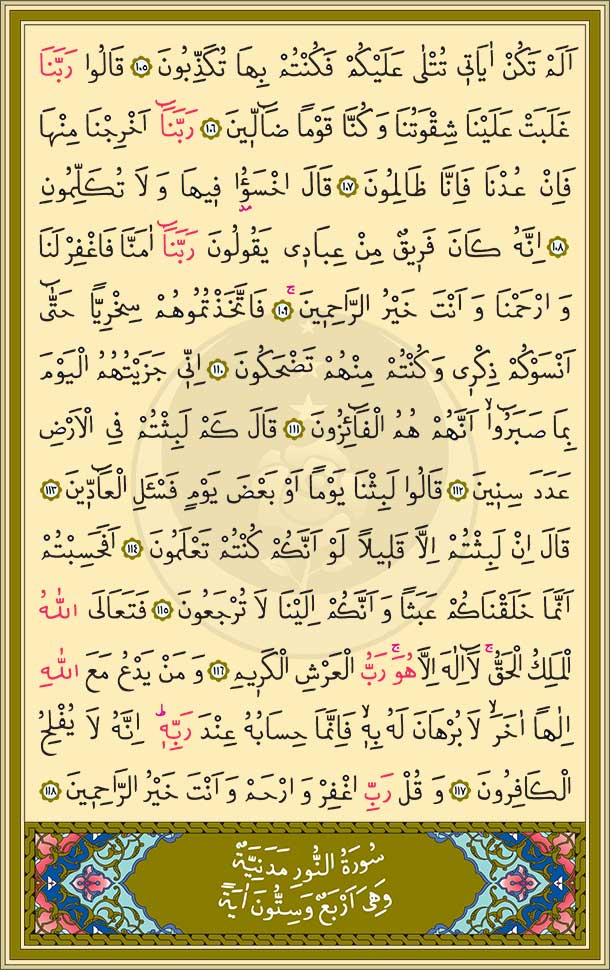 اَلَمْ تَكُنْ اٰيَات۪ي تُتْلٰى عَلَيْكُمْ فَكُنْتُمْ بِهَا تُكَذِّبُونَ ﴿١٠٥﴾ قَالُوا رَبَّنَا
غَلَبَتْ عَلَيْنَا شِقْوَتُنَا وَكُنَّا قَوْماً ضَٓالّ۪ينَ ﴿١٠٦﴾ رَبَّنَٓا اَخْرِجْنَا مِنْهَا
فَاِنْ عُدْنَا فَاِنَّا ظَالِمُونَ ﴿١٠٧﴾ قَالَ اخْسَؤُ۫ا ف۪يهَا وَلَا تُكَلِّمُونِ
﴿١٠٨﴾ اِنَّهُ كَانَ فَر۪يقٌ مِنْ عِبَاد۪ي يَقُولُونَ رَبَّنَٓا اٰمَنَّا فَاغْفِرْ لَنَا
وَارْحَمْنَا وَاَنْتَ خَيْرُ الرَّاحِم۪ينَۚ ﴿١٠٩﴾ فَاتَّخَذْتُمُوهُمْ سِخْرِياًّ حَتّٰٓى
اَنْسَوْكُمْ ذِكْر۪ي وَكُنْتُمْ مِنْهُمْ تَضْحَكُونَ ﴿١١٠﴾ اِنّ۪ي جَزَيْتُهُمُ الْيَوْمَ
بِمَا صَبَرُٓواۙ اَنَّهُمْ هُمُ الْفَٓائِزُونَ ﴿١١١﴾ قَالَ كَمْ لَبِثْتُمْ فِي الْاَرْضِ
عَدَدَ سِن۪ينَ ﴿١١٢﴾ قَالُوا لَبِثْنَا يَوْماً اَوْ بَعْضَ يَوْمٍ فَسْـَٔلِ الْعَٓادّ۪ينَ ﴿١١٣﴾
قَالَ اِنْ لَبِثْتُمْ اِلَّا قَل۪يلاً لَوْ اَنَّكُمْ كُنْتُمْ تَعْلَمُونَ ﴿١١٤﴾ اَفَحَسِبْتُمْ
اَنَّمَا خَلَقْنَاكُمْ عَبَثاً وَاَنَّكُمْ اِلَيْنَا لَا تُرْجَعُونَ ﴿١١٥﴾ فَتَعَالَى اللّٰهُ
الْمَلِكُ الْحَقُّۚ لَٓا اِلٰهَ اِلَّا هُوَۚ رَبُّ الْعَرْشِ الْكَر۪يمِ ﴿١١٦﴾ وَمَنْ يَدْعُ مَعَ اللّٰهِ
اِلٰهاً اٰخَرَۙ لَا بُرْهَانَ لَهُ بِه۪ۙ فَاِنَّمَا حِسَابُهُ عِنْدَ رَبِّه۪ۜ اِنَّهُ لَا يُفْلِحُ
الْكَافِرُونَ ﴿١١٧﴾ وَقُلْ رَبِّ اغْفِرْ وَارْحَمْ وَاَنْتَ خَيْرُ الرَّاحِم۪ينَ ﴿١١٨﴾
سُورَةُ النُّورِ مَدَنِيَّةٌ
وَهِيَ اَرْبَعٌ وَسِتُّونَ اٰيَةً